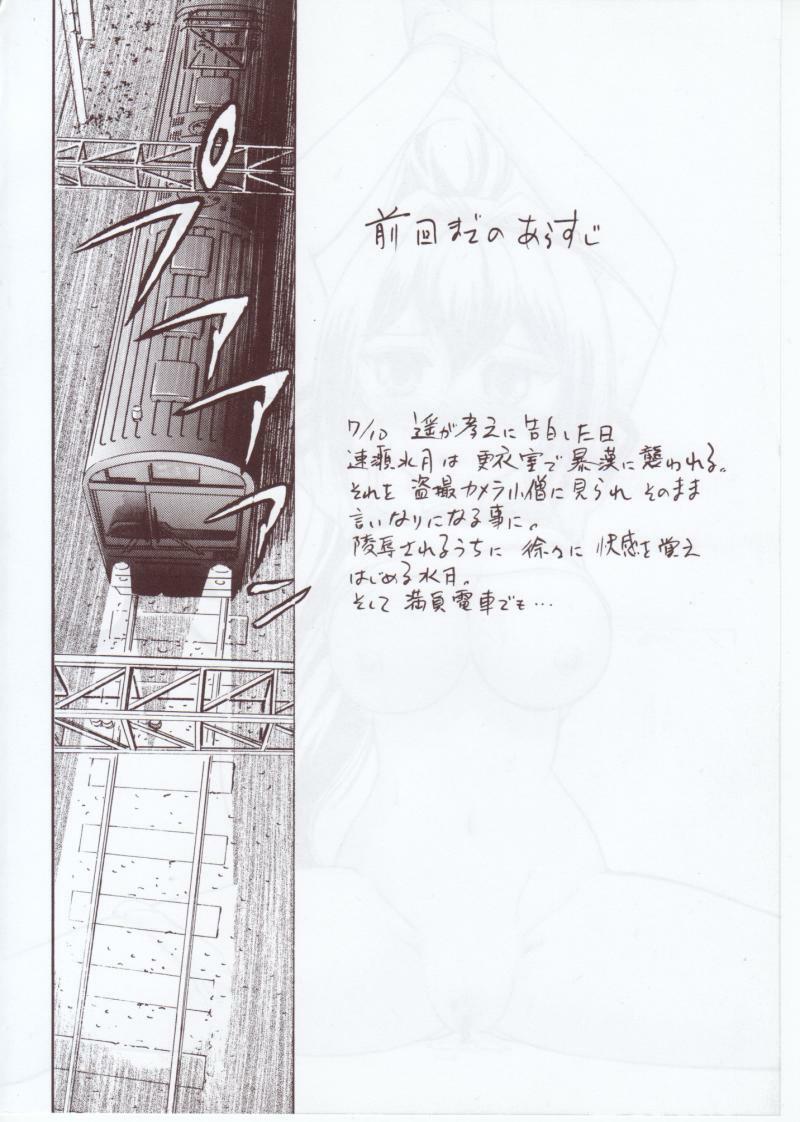 前回までのあらすじ
7/10 遥が考えに告白した日
速瀬水月は 更衣室で暴漢に襲われる。
それを 盗撮カメラ小僧に見られ そのまま
言いなりになる事に。
陵辱されるうちに 徐々に 快感を覚え
はじめる水月。
そして 満員電車でも…